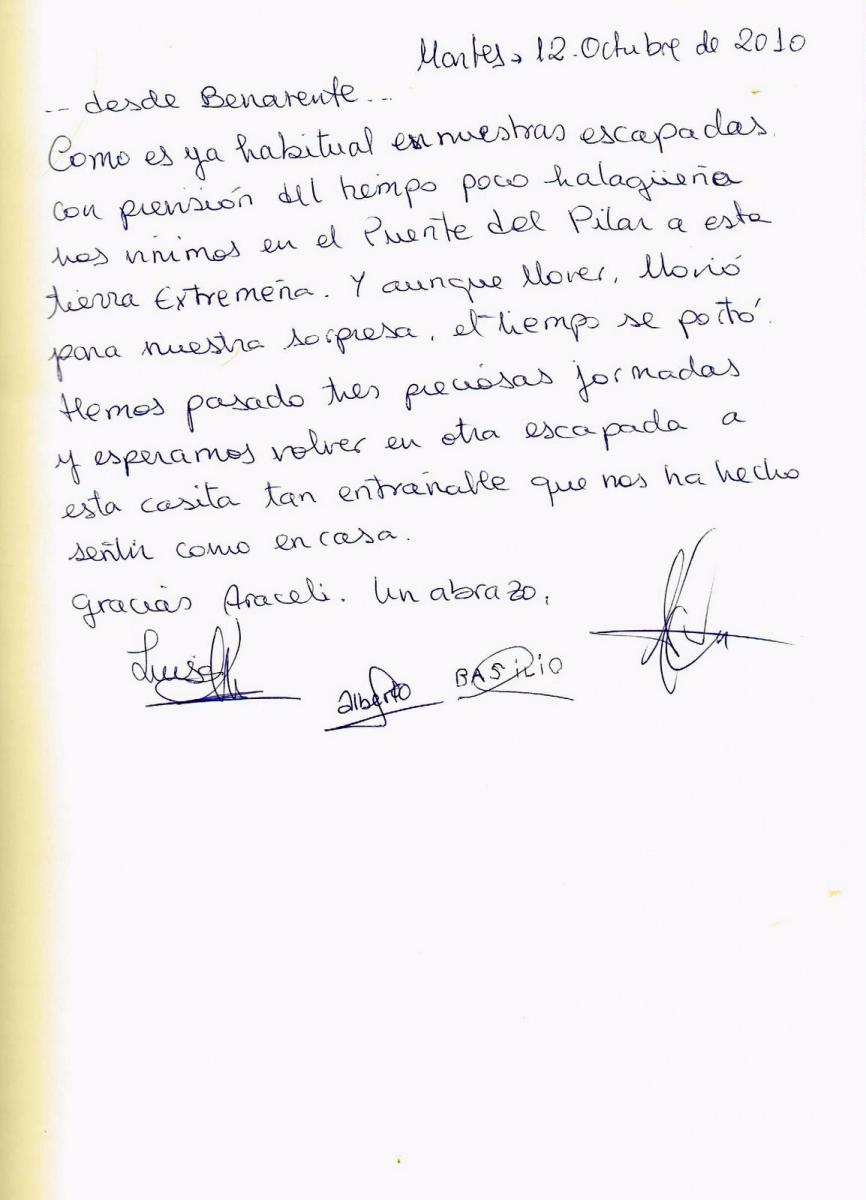 Martes, 12. Octubre de 2010
-- desde Benavente...
Como es ya habitual en nuestras escapadas.
con previsión del tiempo poco halagüeña
nos vinimos en el Puente del Pilar a esta
tierra Extremeña. Y aunque llover, llovió
para nuestra sorpresa, el tiempo se portó.
Hemos pasado tres preciosas jornadas
y esperamos volver en otra escapada a
esta casita tan entrañable que nos ha hecho
sentir como en casa.
Gracias Araceli. Un abrazo,
alberto BASILIO